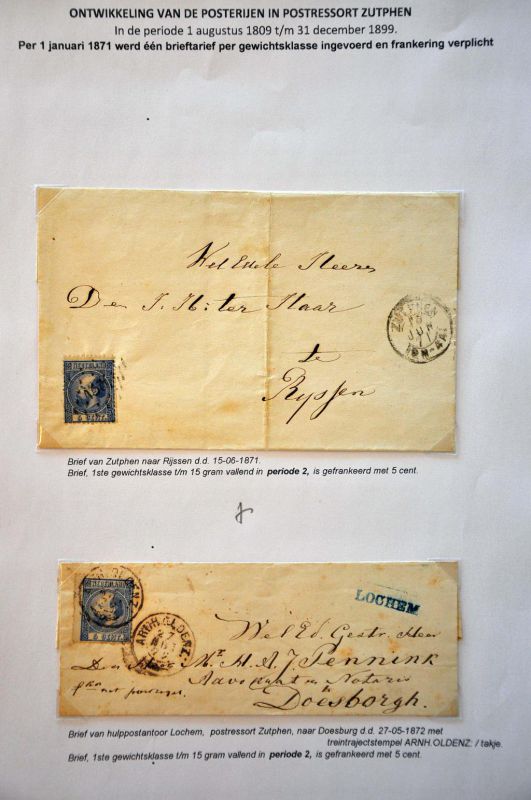 ONTWIKKELING VAN DE POSTERIJEN IN POSTRESSORT ZUTPHEN
In de periode 1 augustus 1809 t/m 31 december 1899.
Per 1 januari 1871 werd één brieftarief per gewichtsklasse ingevoerd en frankering verplicht
Wel Edele Heere
Den J. H: ter Haar
te
Ryssen
NEDERLAND
5 CENT.
JUN
71
Brief van Zutphen naar Rijssen d.d. 15-06-1871.
Brief, 1ste gewichtsklasse t/m 15 gram vallend in periode 2, is gefrankeerd met 5 cent.
5 CENT.
ARNH.OLDENZ:
LOCHEM
Wel Ed. Gestr. Heer
Den Heer Mr. H. A. J. Pennink
Advokaat en Notaris
Doesborgh.
Brief van hulppostantoor Lochem, postressort Zutphen, naar Doesburg d.d. 27-05-1872 met
treintrajectstempel ARNH.OLDENZ: / takje.
Brief, 1ste gewichtsklasse t/m 15 gram vallend in periode 2, is gefrankeerd met 5 cent.